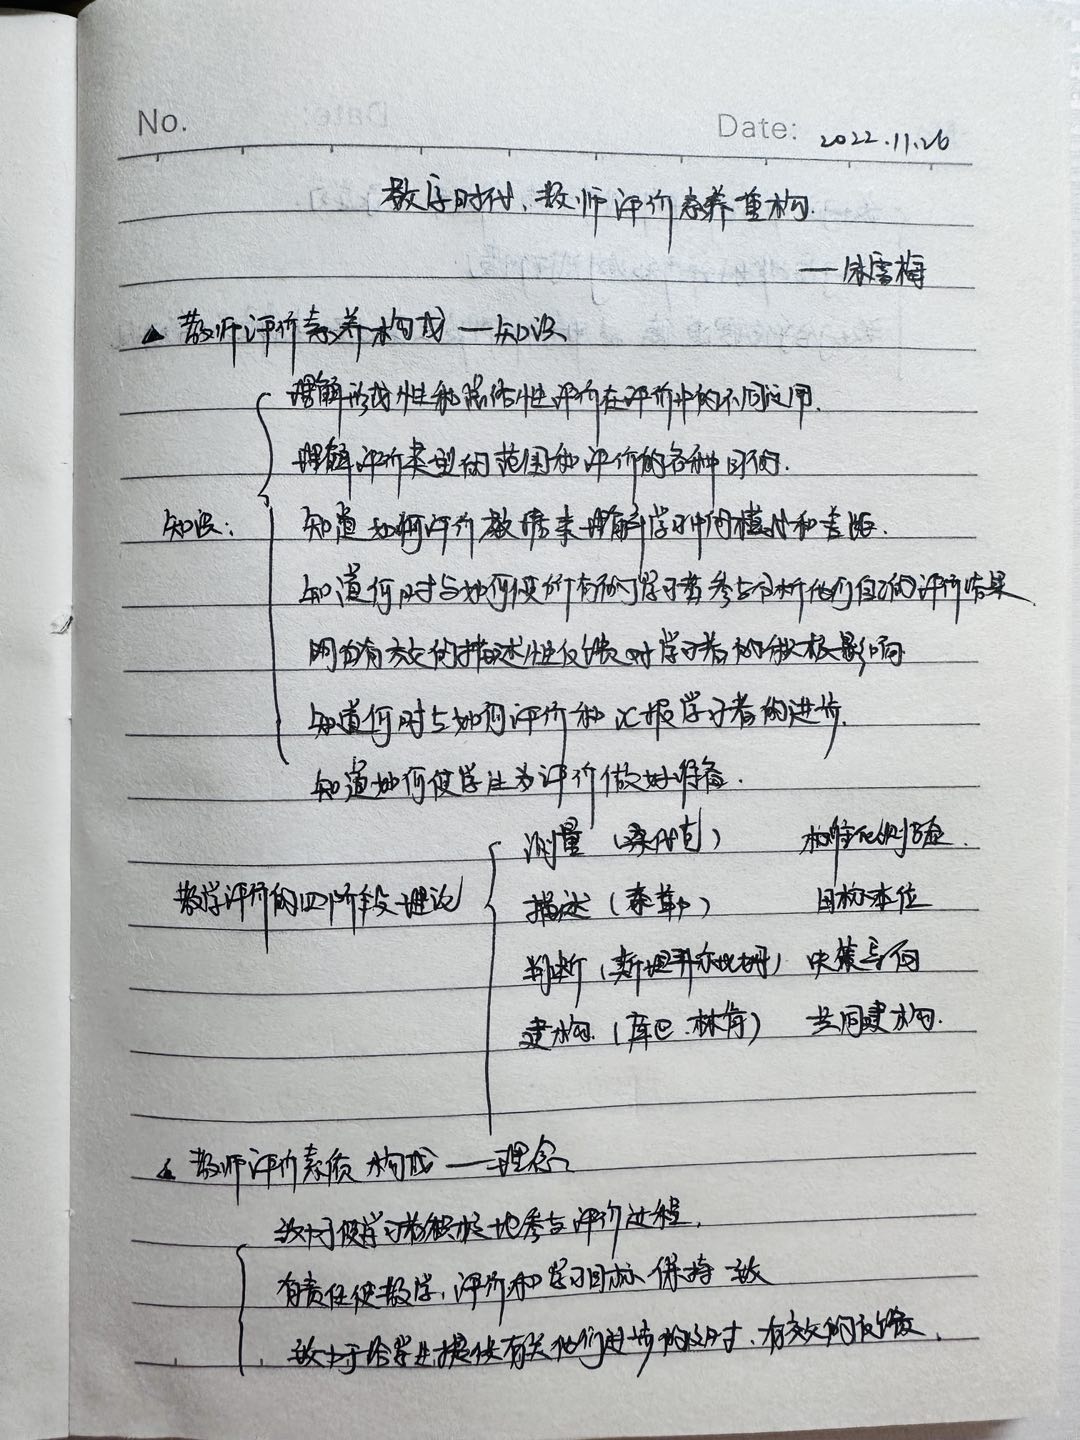 No.
Date: 2022.11.26
数字时代,教师评价素养重构.
——宋雪梅
▲ 教师评价素养构成——知识
理解形成性和总结性评价在评价中的不同应用.
理解评价类型的范围和评价的各种目的.
知识:
知道如何评价数据来理解学习中的模式和差距.
知道何时与如何使所有的学习者参与分析他们自己的评价结果.
明白有效的描述性反馈对学习者的积极影响
知道何时与如何评价和汇报学习者的进步.
知道如何使学生为评价做好准备.
教学评价的四阶段理论
测量(桑代克) 标准化测验.
描述(泰勒) 目标本位
判断(斯坦弗尔比姆) 决策导向
建构.(库巴.林肯) 共同建构.
▲ 教师评价素质构成——理念
致力于使学习者积极地参与评价过程.
有责任使教学,评价和学习目标保持一致
致力于给学生提供有关他们进步的及时、有效的反馈.